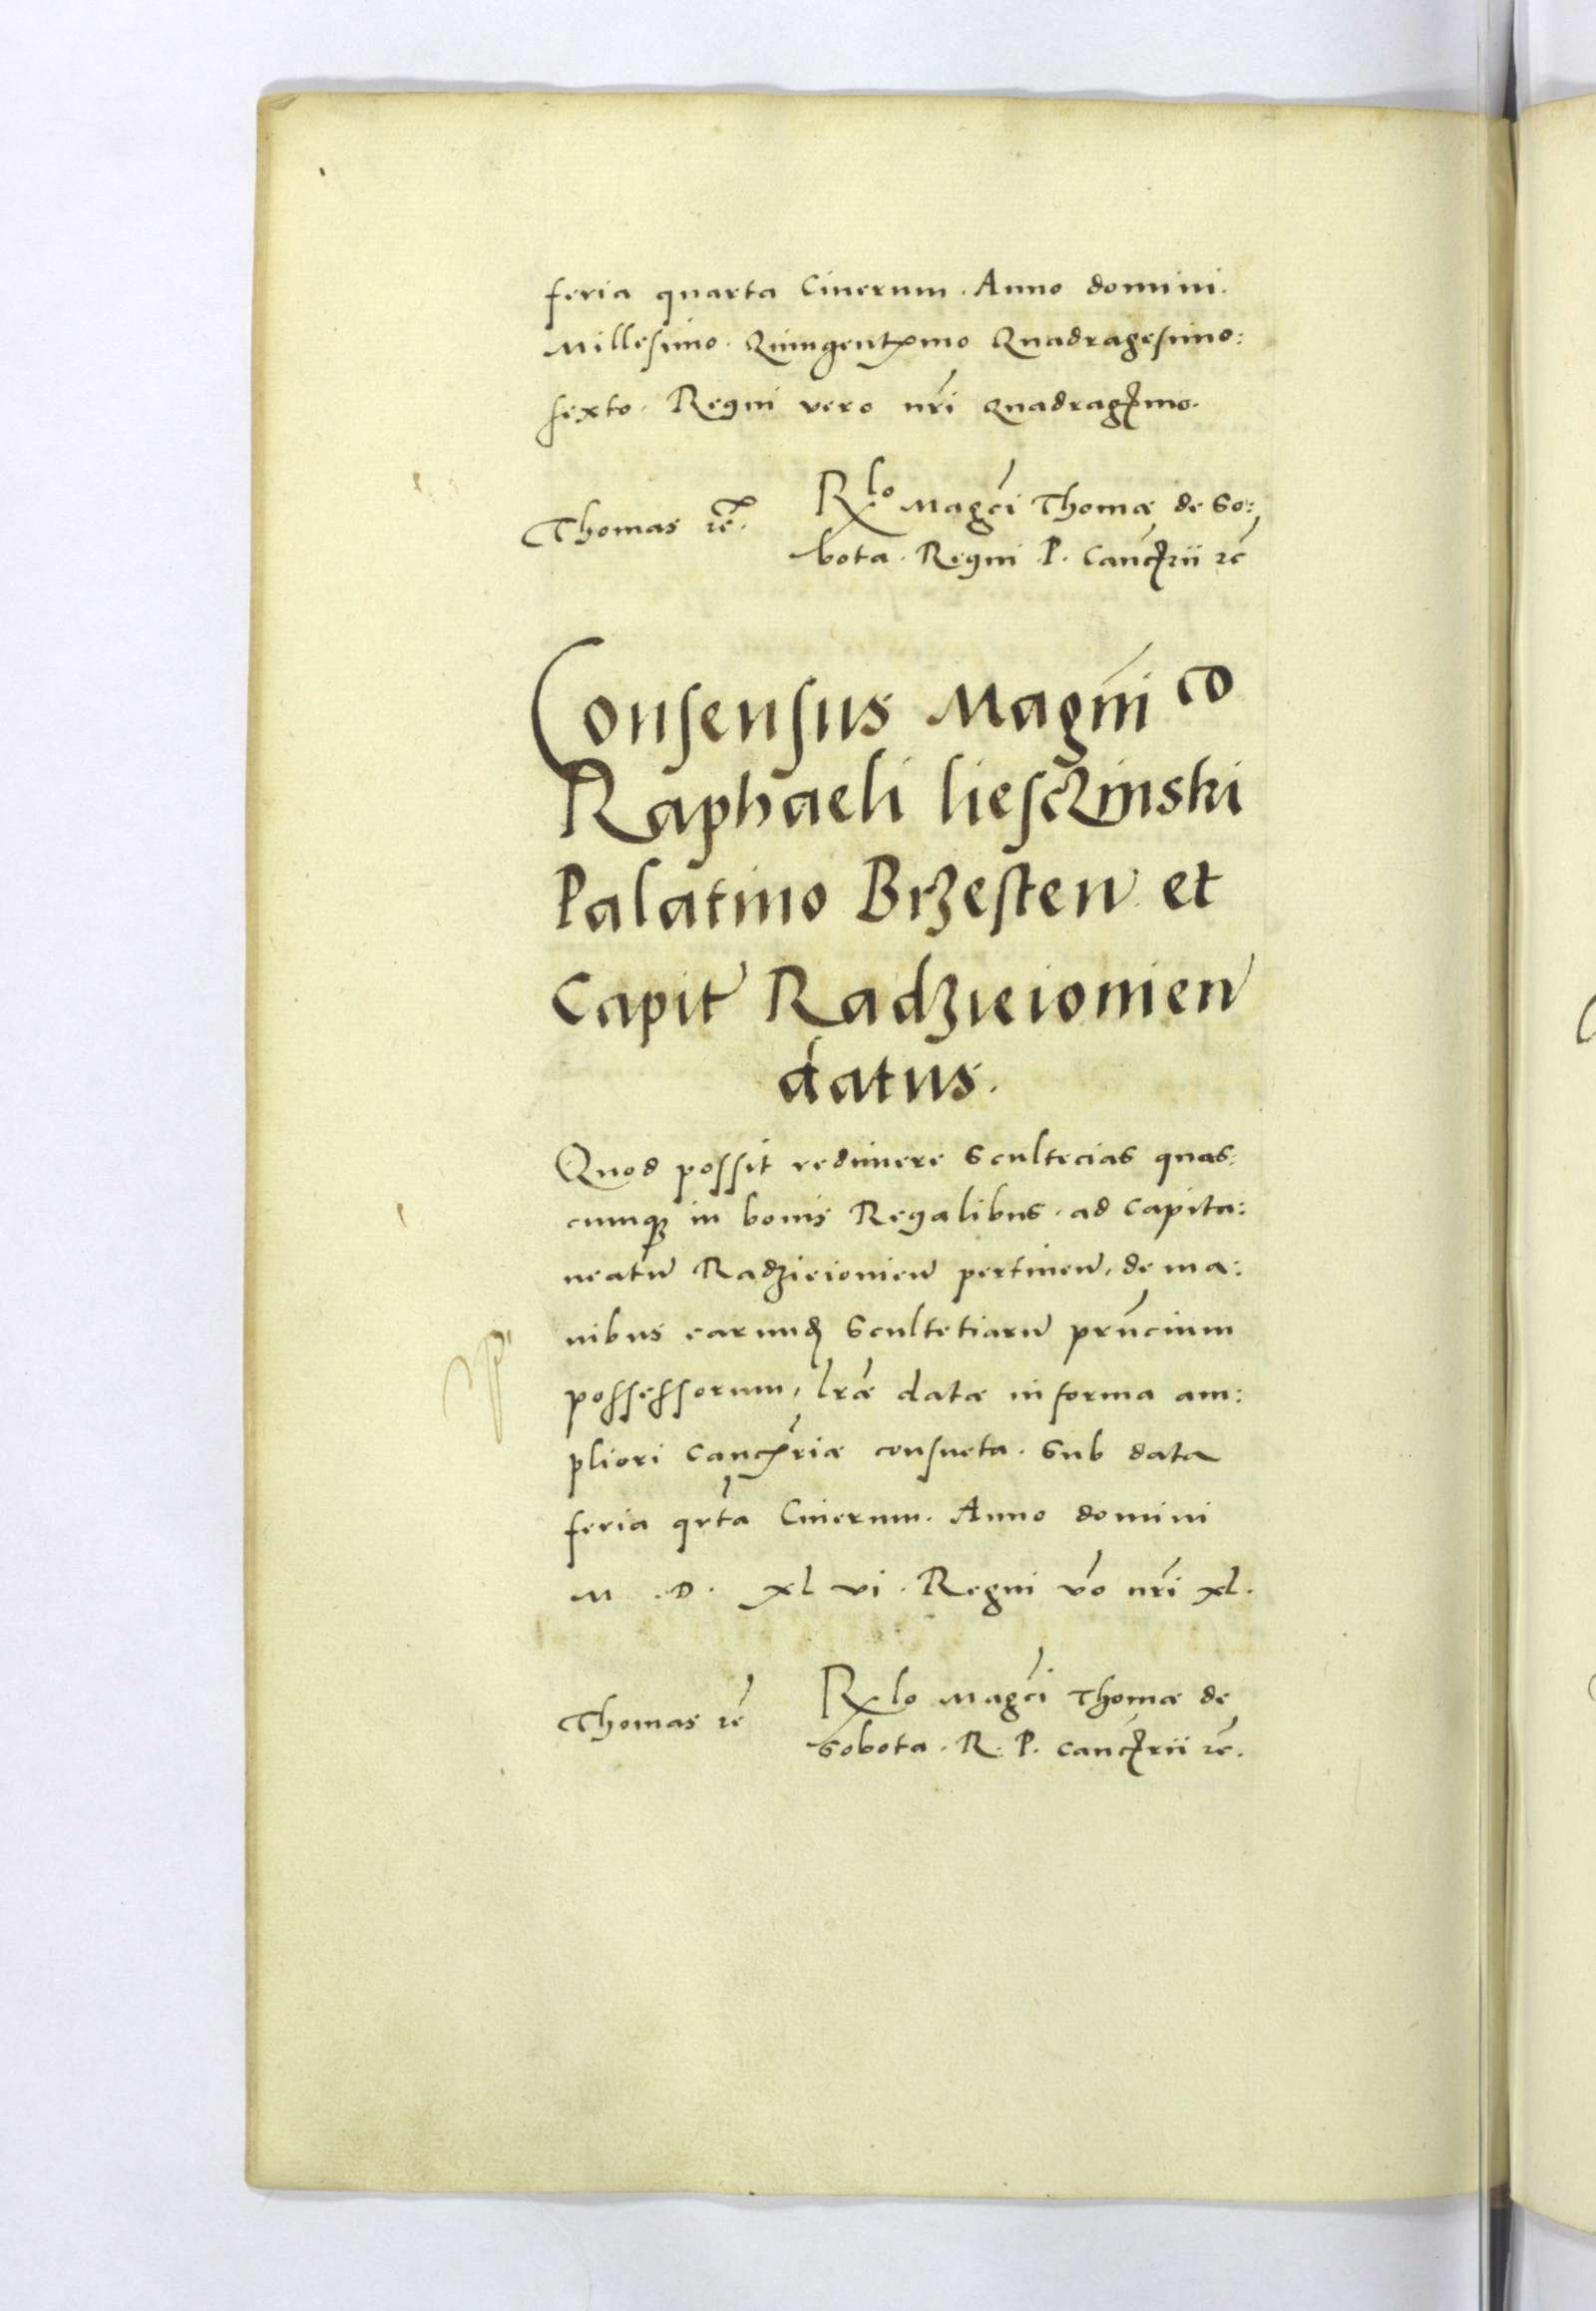 feria quarta Cinerum. Anno domini.
Millesimo. Quingentᵱmo Quadragesimo:
sexto. Regni vero nrī Quadragꝭmo.
Thomas rē.
Rlo Magcī Thomæ de So:
bota. Regni .P. Cancꝭrii rē
Consensus Magnīco
Raphaeli liesczinski
Palatino Brzesten et
Capit Radzieionien
datus.
Quod possit redimere Scultecias quas:
cumqꝫ in bonis Regalibus. ad capita:
neatū Radzieionien pertinen. de ma:
nibus earundꝫ Scultetiarū prn̄cium
possessorum, lr̄æ datæ in forma am:
pliori cancꝭriæ consueta. Sub data
feria qrta Cinerum. Anno domini
M .D. xl vi. Regni vō nrī xl.
Thomas rē
Rlo Magcī Thomæ de
Sobota. R. P. cancꝭrii rē.